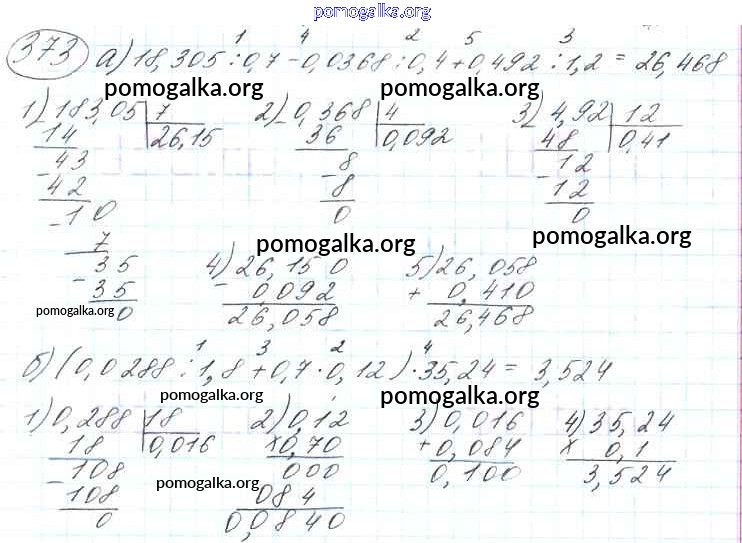 pomogalka.org
373 а) 18,305 : 0,7 - 0,0368 : 0,4 + 0,492 : 1,2 = 26,468
1 4 2 5 3
pomogalka.org pomogalka.org
1) 183,05 | 7
14 26,15
- 43
42
- 10
7
- 35
35
0
2) - 0,368 | 4
36 0,092
- 8
8
0
3) 4,92 | 12
48 0,41
- 12
12
0
pomogalka.org pomogalka.org
4) 26,150
- 0,092
26,058
5) 26,058
+ 0,410
26,468
pomogalka.org
б) (0,0288 : 1,8 + 0,7 · 0,12) · 35,24 = 3,524
1 3 2 4
pomogalka.org pomogalka.org
1) 0,288 | 18
18 0,016
- 108
108
0
2) 0,12
× 0,70
000
084
0,0840
3) 0,016
+ 0,084
0,100
4) 35,24
× 0,1
3,524
pomogalka.org